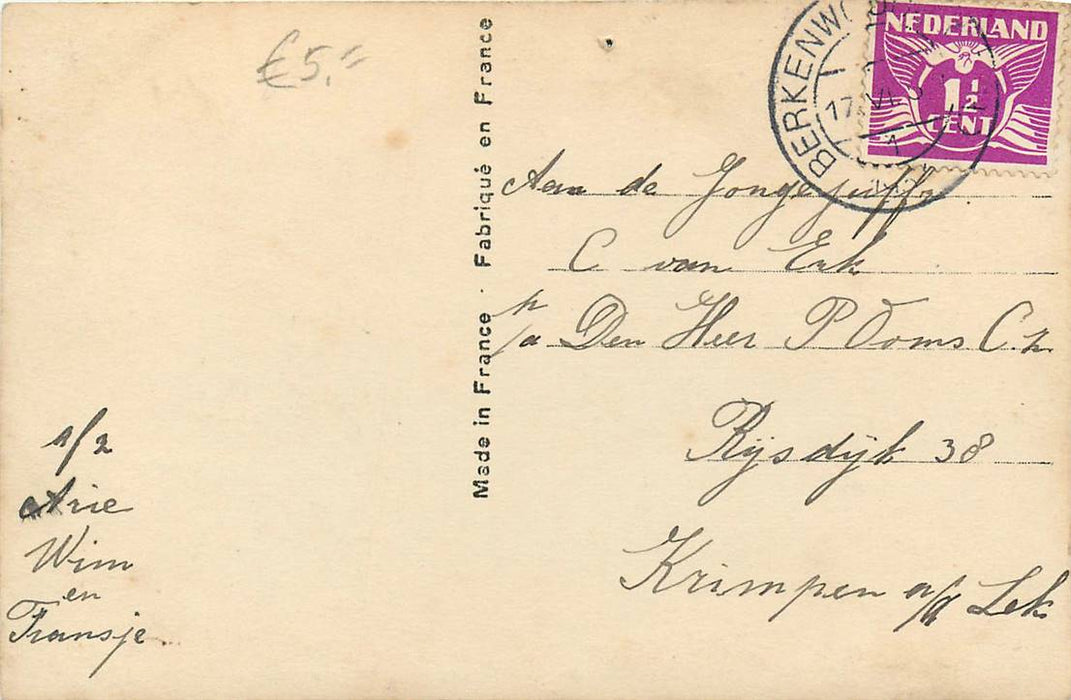 €5,=
Made in France · Fabriqué en France
NEDERLAND
1½
CENT
BERKENWO
17 VI 3
Aan de Jongejuffr
C van Erk
p/a Den Heer P Ooms C.z.
Rijsdijk 38
Krimpen a/d Lek
1/2
Arie
Wim
en
Fransje